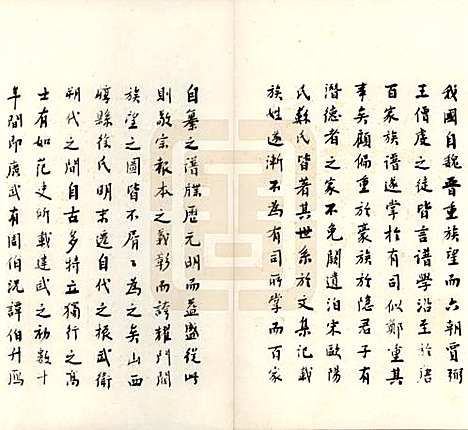 我國自魏晉重族望而六朝賈弼
王僧虔之徒皆言譜學沿至於唐
百家族譜遂掌於有司似鄭重其
事矣顧偏重於豪族於隱君子有
潛德者之家不免闕遺洎宋歐陽
氏蘇氏皆著其世系於文集記載
族姓遂漸不為有司所掌而百家
自纂之譜牒歷元明而益盛從此
則敬宗報本之義彰而誇耀門閥
族望之圖皆不屑〻為之矣山西
縣徐氏明末遷自代之振武衛
朔代之間自古多特立獨行之高
士有如范史所載建武之初數十
年間即廣武有周伯況譚伯升隱